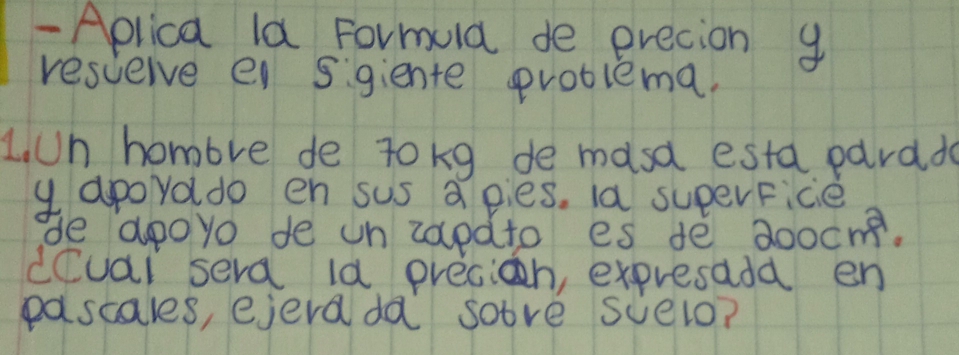 -Aplica la Formula de precion y
resuelve el sigiente problema.
1. Un hombre de 70 kg de masa esta parado
y apoyado en sus 2 pies. la superficie
de apoyo de un zapato es de 200cm².
¿Cual sera la precion, expresada en
pascales, ejerada sobre suelo?